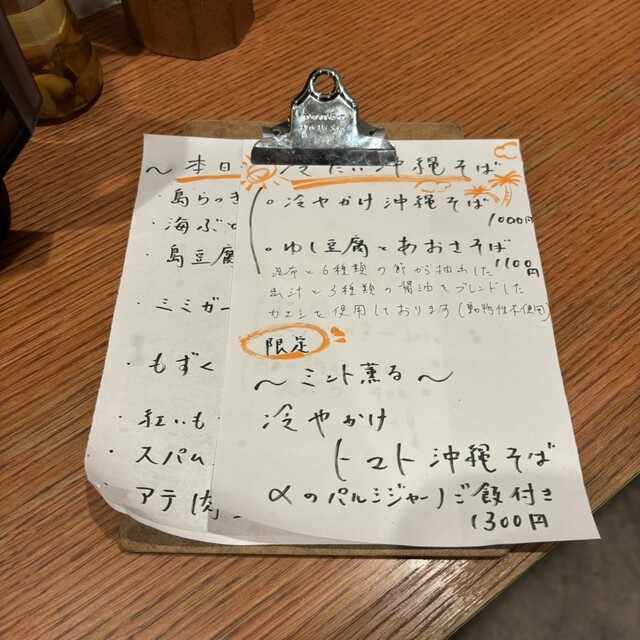 ～本日
・島らっき
・海ぶど
・島豆腐
・ミミガー
・もずく
・紅いも
・スパム
・アテ肉
冷たい沖縄そば
。冷やかけ沖縄そば
1000円
。ゆし豆腐とあおさそば
1100円
昆布と6種類の節から抽出した
出汁と3種類の醤油をブレンドした
カエシを使用しております(動物性不使用)
限定
～ミント薫る～
冷やかけ
トマト沖縄そば
〆のパルミジャーノご飯付き
1300円